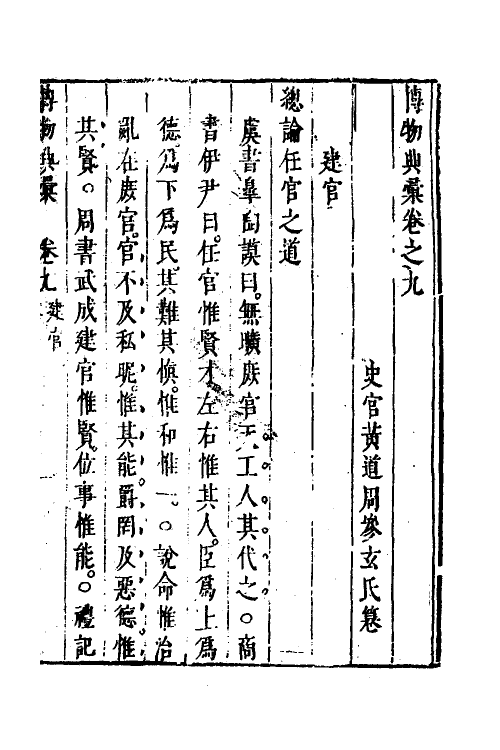 博物典彙卷之九
史官黃道周參玄氏纂
建官
總論任官之道
虞書臯陶謨曰無曠庶官天工人其代之○商
書伊尹曰任官惟賢才左右惟其人臣爲上爲
德爲下爲民其難其慎惟和惟一○說命惟治
亂在庶官官不及私昵惟其能爵罔及惡德惟
其賢○周書武成建官惟賢位事惟能○禮記
博物典彙 卷九 建官